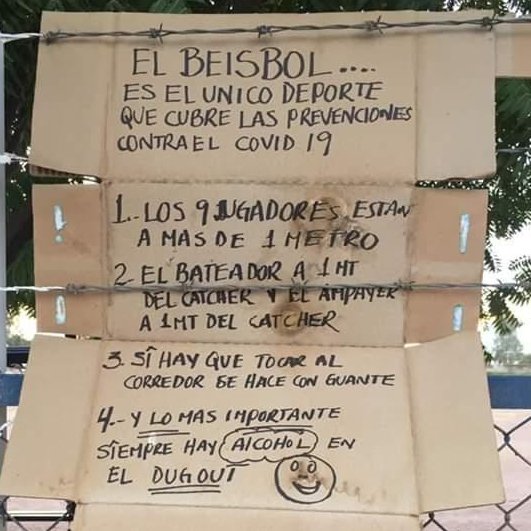 EL BEISBOL....
ES EL UNICO DEPORTE
QUE CUBRE LAS PREVENCIONES
CONTRA EL COVID 19
1.- LOS 9 JUGADORES ESTAN
A MAS DE 1 METRO
2 EL BATEADOR A 1 MT
DEL CATCHER Y EL AMPAYER
A 1 MT DEL CATCHER
3. SI HAY QUE TOCAR AL
CORREDOR SE HACE CON GUANTE
4.- Y LO MAS IMPORTANTE
SIEMPRE HAY ALCOHOL EN
EL DUGOUT